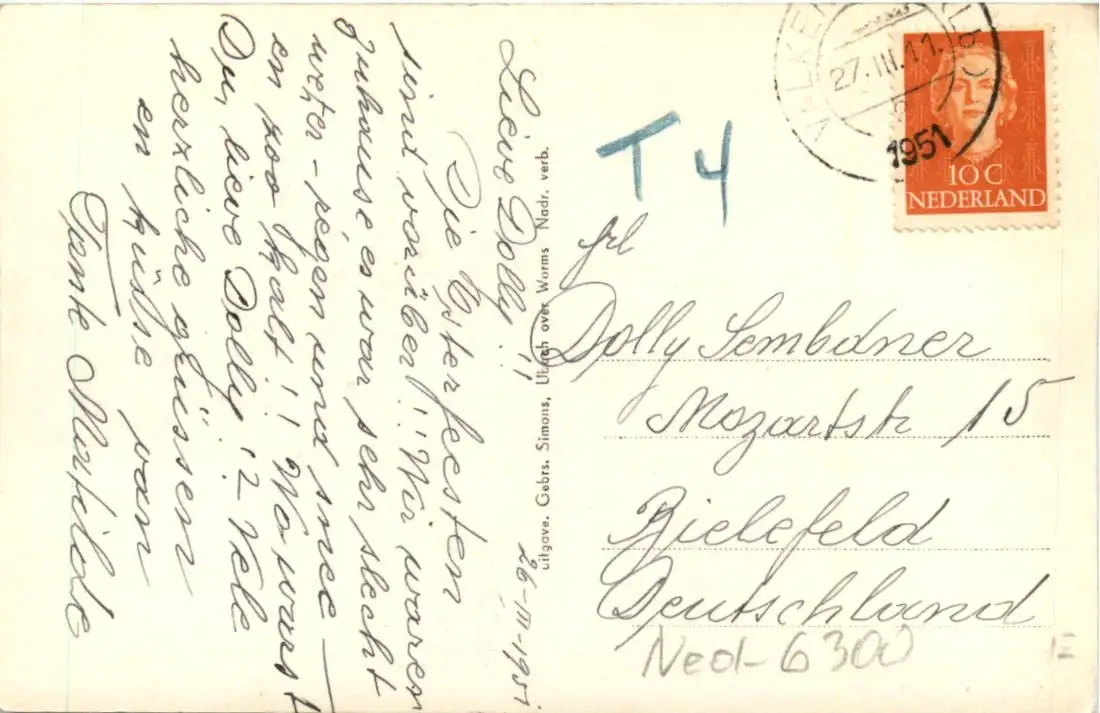 26-III-1951
Lieve Dolly!!
Die Esterfesten
sind vorüber!! Wir waren
Zuhause es war sehr slecht
weter - regen und snee -
en zoo kalt!! Wo warst
Du, lieve Dolly!? Vele
herzliche grüssen
en küsse van
Tante Matilde
uitgave. Gebrs. Simons, Ubach over Worms Nadr. verb.
T 4
VALKEN
27.III.11
1951
10 C
NEDERLAND
frl
Dolly Sembdner
Mozartstr 15
Bielefeld
Deutschland
Ned-6300